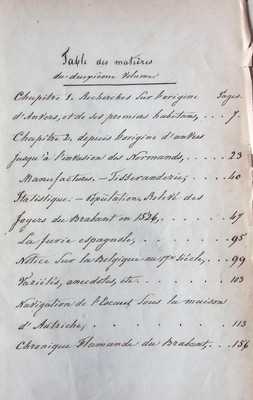 Table des matières
du deuxième Volume
Chapitre 1. Recherches Sur l'origine Pages.
d'Anvers, et de ses premiers habitans, . . 7.
Chapitre 2. depuis l'origine d'anvers
jusqu'à l'invasion des Normands, . . . . 23
Manufactures. — Tisseranderie; . . . . 40
Statistique. — Population, Relevé des
foyers du Brabant en 1526, . . . . . 47
La furie espagnole, . . . . . . 95
Notice Sur la Belgique au 17me Siècle, . . . 99
Variétés, anecdotes, etc. . . . . . 103
Navigation de l'Escaut Sous la maison
d'Autriche, . . . . . . . . 113
Chronique Flamande du Brabant, . . . 156